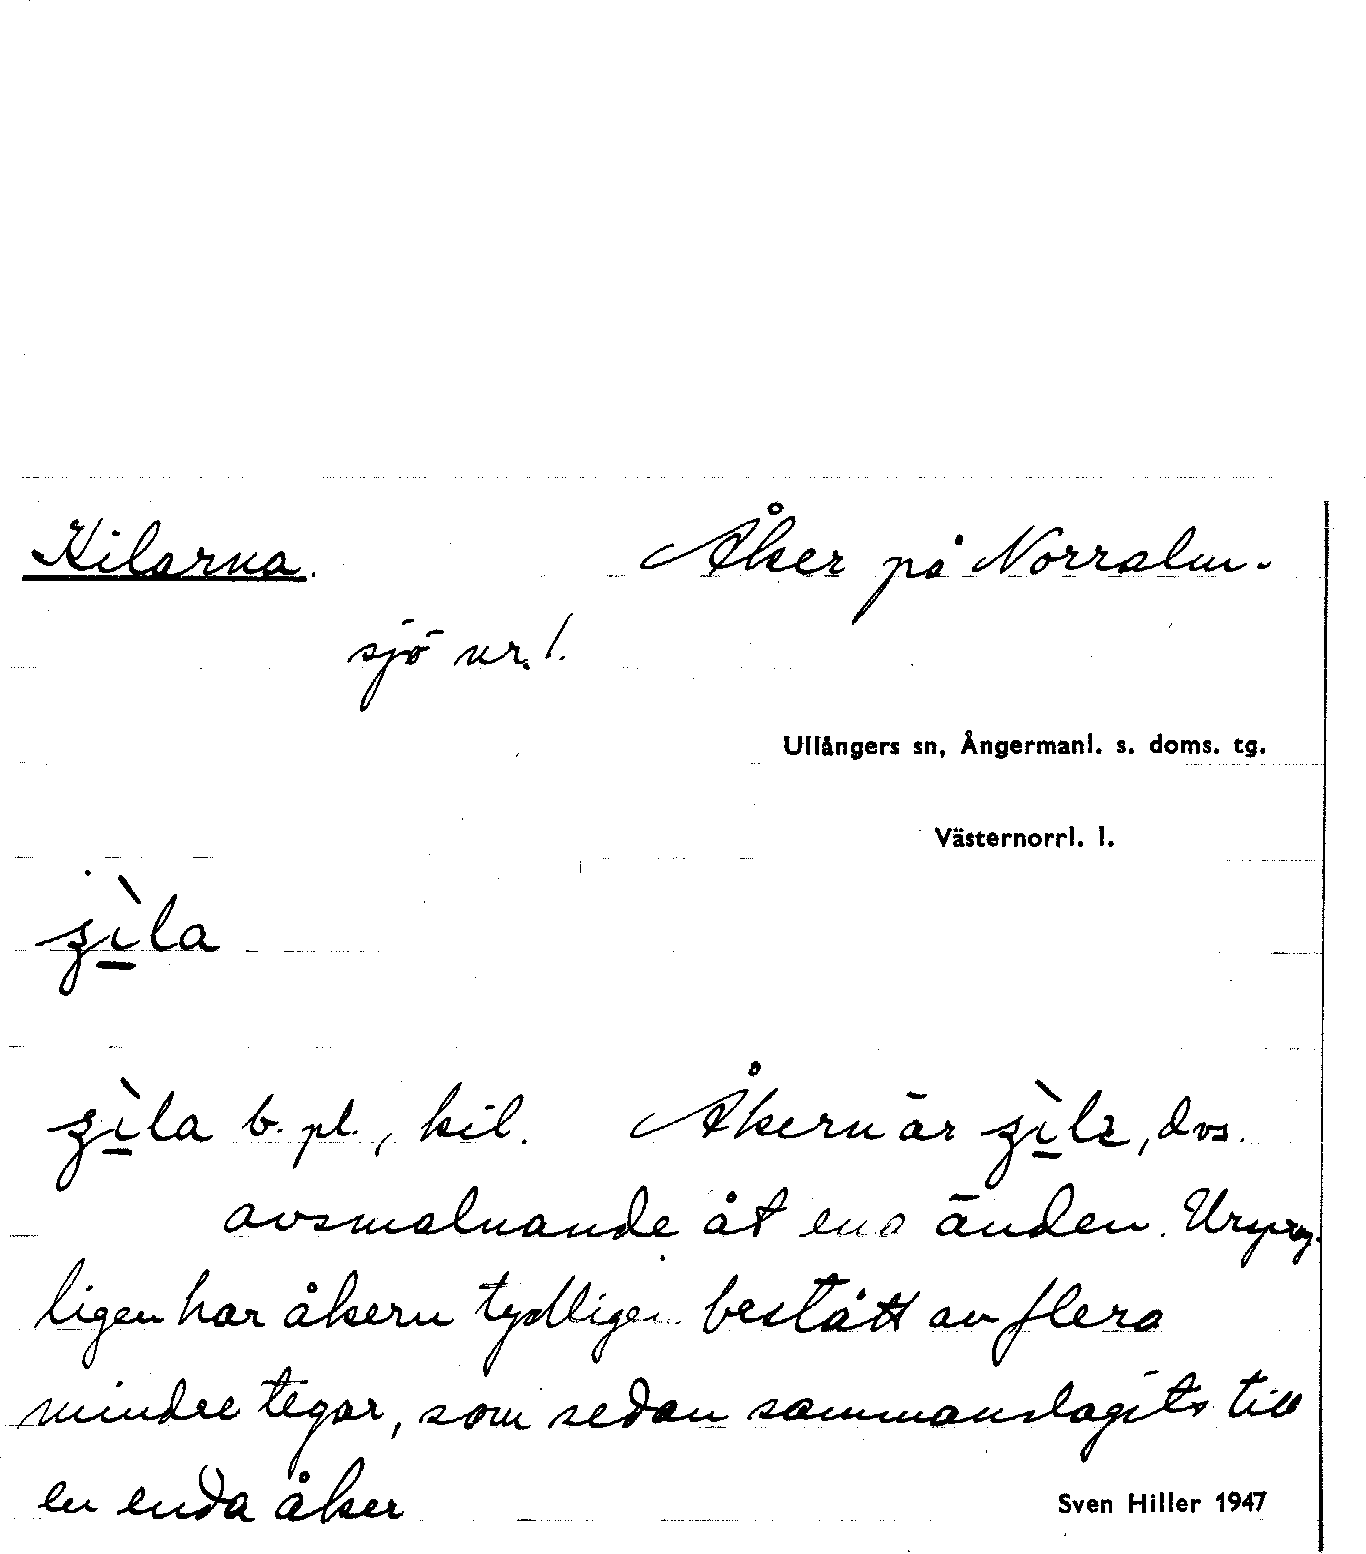 Kilarna. Åker på Norralm-
sjö nr. 1.
Ullångers sn, Ångermanl. s. doms. tg.
Västernorrl. l.
ʒìla
ʒìla b. pl., kil. Åkern är ʒìlɛ, dvs.
avsmalnande åt ena änden. Urspr.
ligen har åkern tydligen bestått av flera
mindre tegar, som sedan sammanslagits till
en enda åker
Sven Hiller 1947